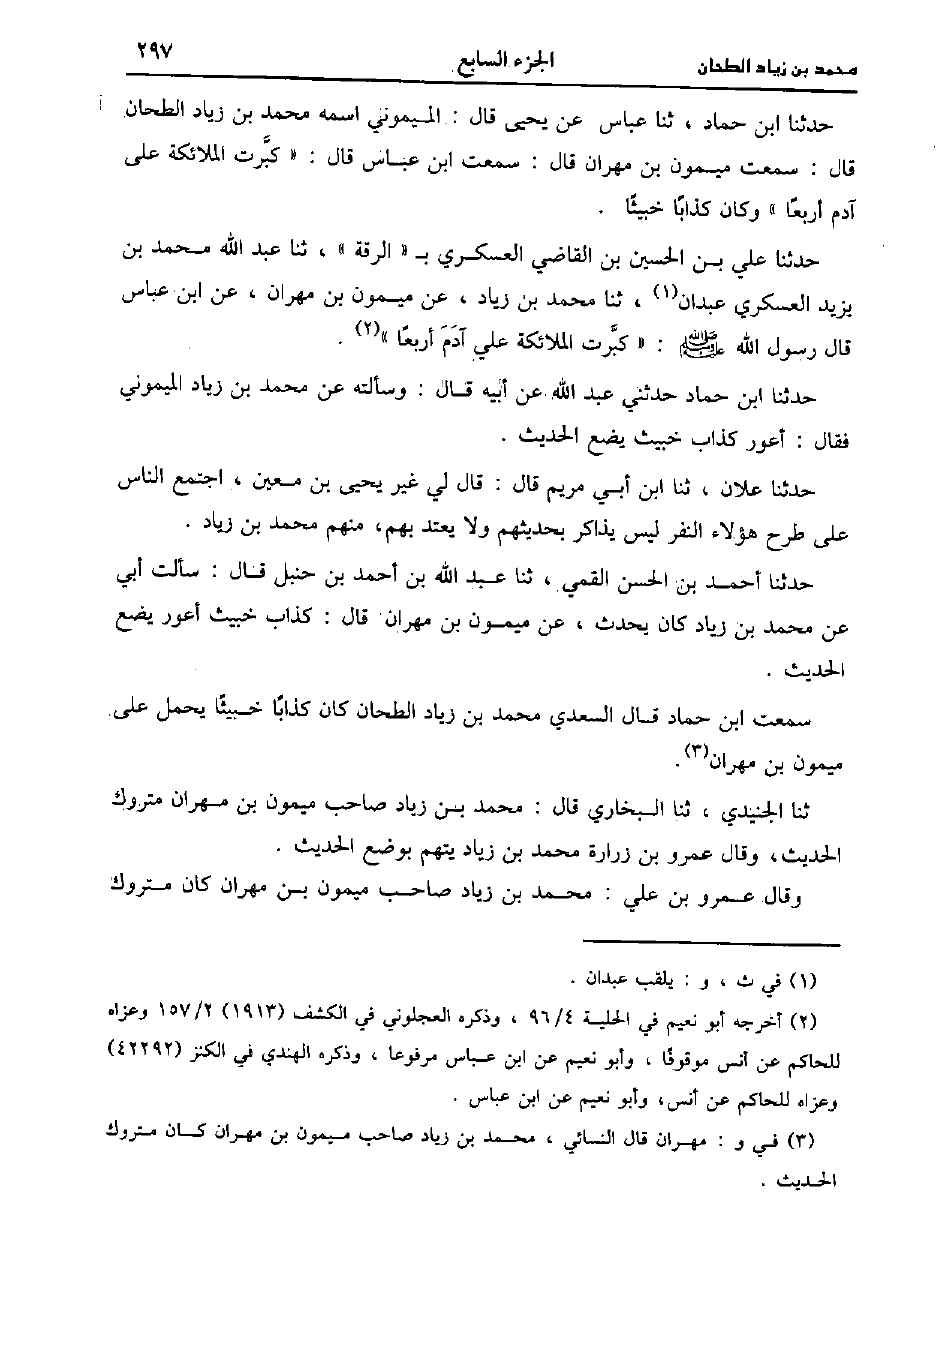 محمد بن زياد الطحان الجزء السابع ٢٩٧
حدثنا ابن حماد ، ثنا عباس عن يحيى قال : الميموني اسمه محمد بن زياد الطحان
قال : سمعت ميمون بن مهران قال : سمعت ابن عباس قال : « كبَّرت الملائكة على
آدم أربعًا » وكان كذابًا خبيثًا .
حدثنا علي بن الحسين بن القاضي العسكري بـ « الرقة » ، ثنا عبد الله محمد بن
يزيد العسكري عبدان(١) ، ثنا محمد بن زياد ، عن ميمون بن مهران ، عن ابن عباس
قال رسول الله ﷺ : « كبَّرت الملائكة علي آدَمَ أربعًا »(٢) .
حدثنا ابن حماد حدثني عبد الله عن أبيه قال : وسألته عن محمد بن زياد الميموني
فقال : أعور كذاب خبيث يضع الحديث .
حدثنا علان ، ثنا ابن أبي مريم قال : قال لي غير يحيى بن معين ، اجتمع الناس
على طرح هؤلاء النفر ليس يذاكر بحديثهم ولا يعتد بهم، منهم محمد بن زياد .
حدثنا أحمد بن الحسن القمي ، ثنا عبد الله بن أحمد بن حنبل قال : سألت أبي
عن محمد بن زياد كان يحدث ، عن ميمون بن مهران قال : كذاب خبيث أعور يضع
الحديث .
سمعت ابن حماد قال السعدي محمد بن زياد الطحان كان كذابًا خبيثًا يحمل على
ميمون بن مهران(٣).
ثنا الجنيدي ، ثنا البخاري قال : محمد بن زياد صاحب ميمون بن مهران متروك
الحديث، وقال عمرو بن زرارة محمد بن زياد يتهم بوضع الحديث .
وقال عمرو بن علي : محمد بن زياد صاحب ميمون بن مهران كان متروك
(١) في ث ، و : يلقب عبدان .
(٢) أخرجه أبو نعيم في الحلية ٩٦/٤ ، وذكره العجلوني في الكشف (١٩١٣) ١٥٧/٢ وعزاه
للحاكم عن أنس موقوفًا ، وأبو نعيم عن ابن عباس مرفوعا ، وذكره الهندي في الكنز (٤٢٢٩٢)
وعزاه للحاكم عن أنس، وأبو نعيم عن ابن عباس .
(٣) في و : مهران قال النسائي ، محمد بن زياد صاحب ميمون بن مهران كان متروك
الحديث .